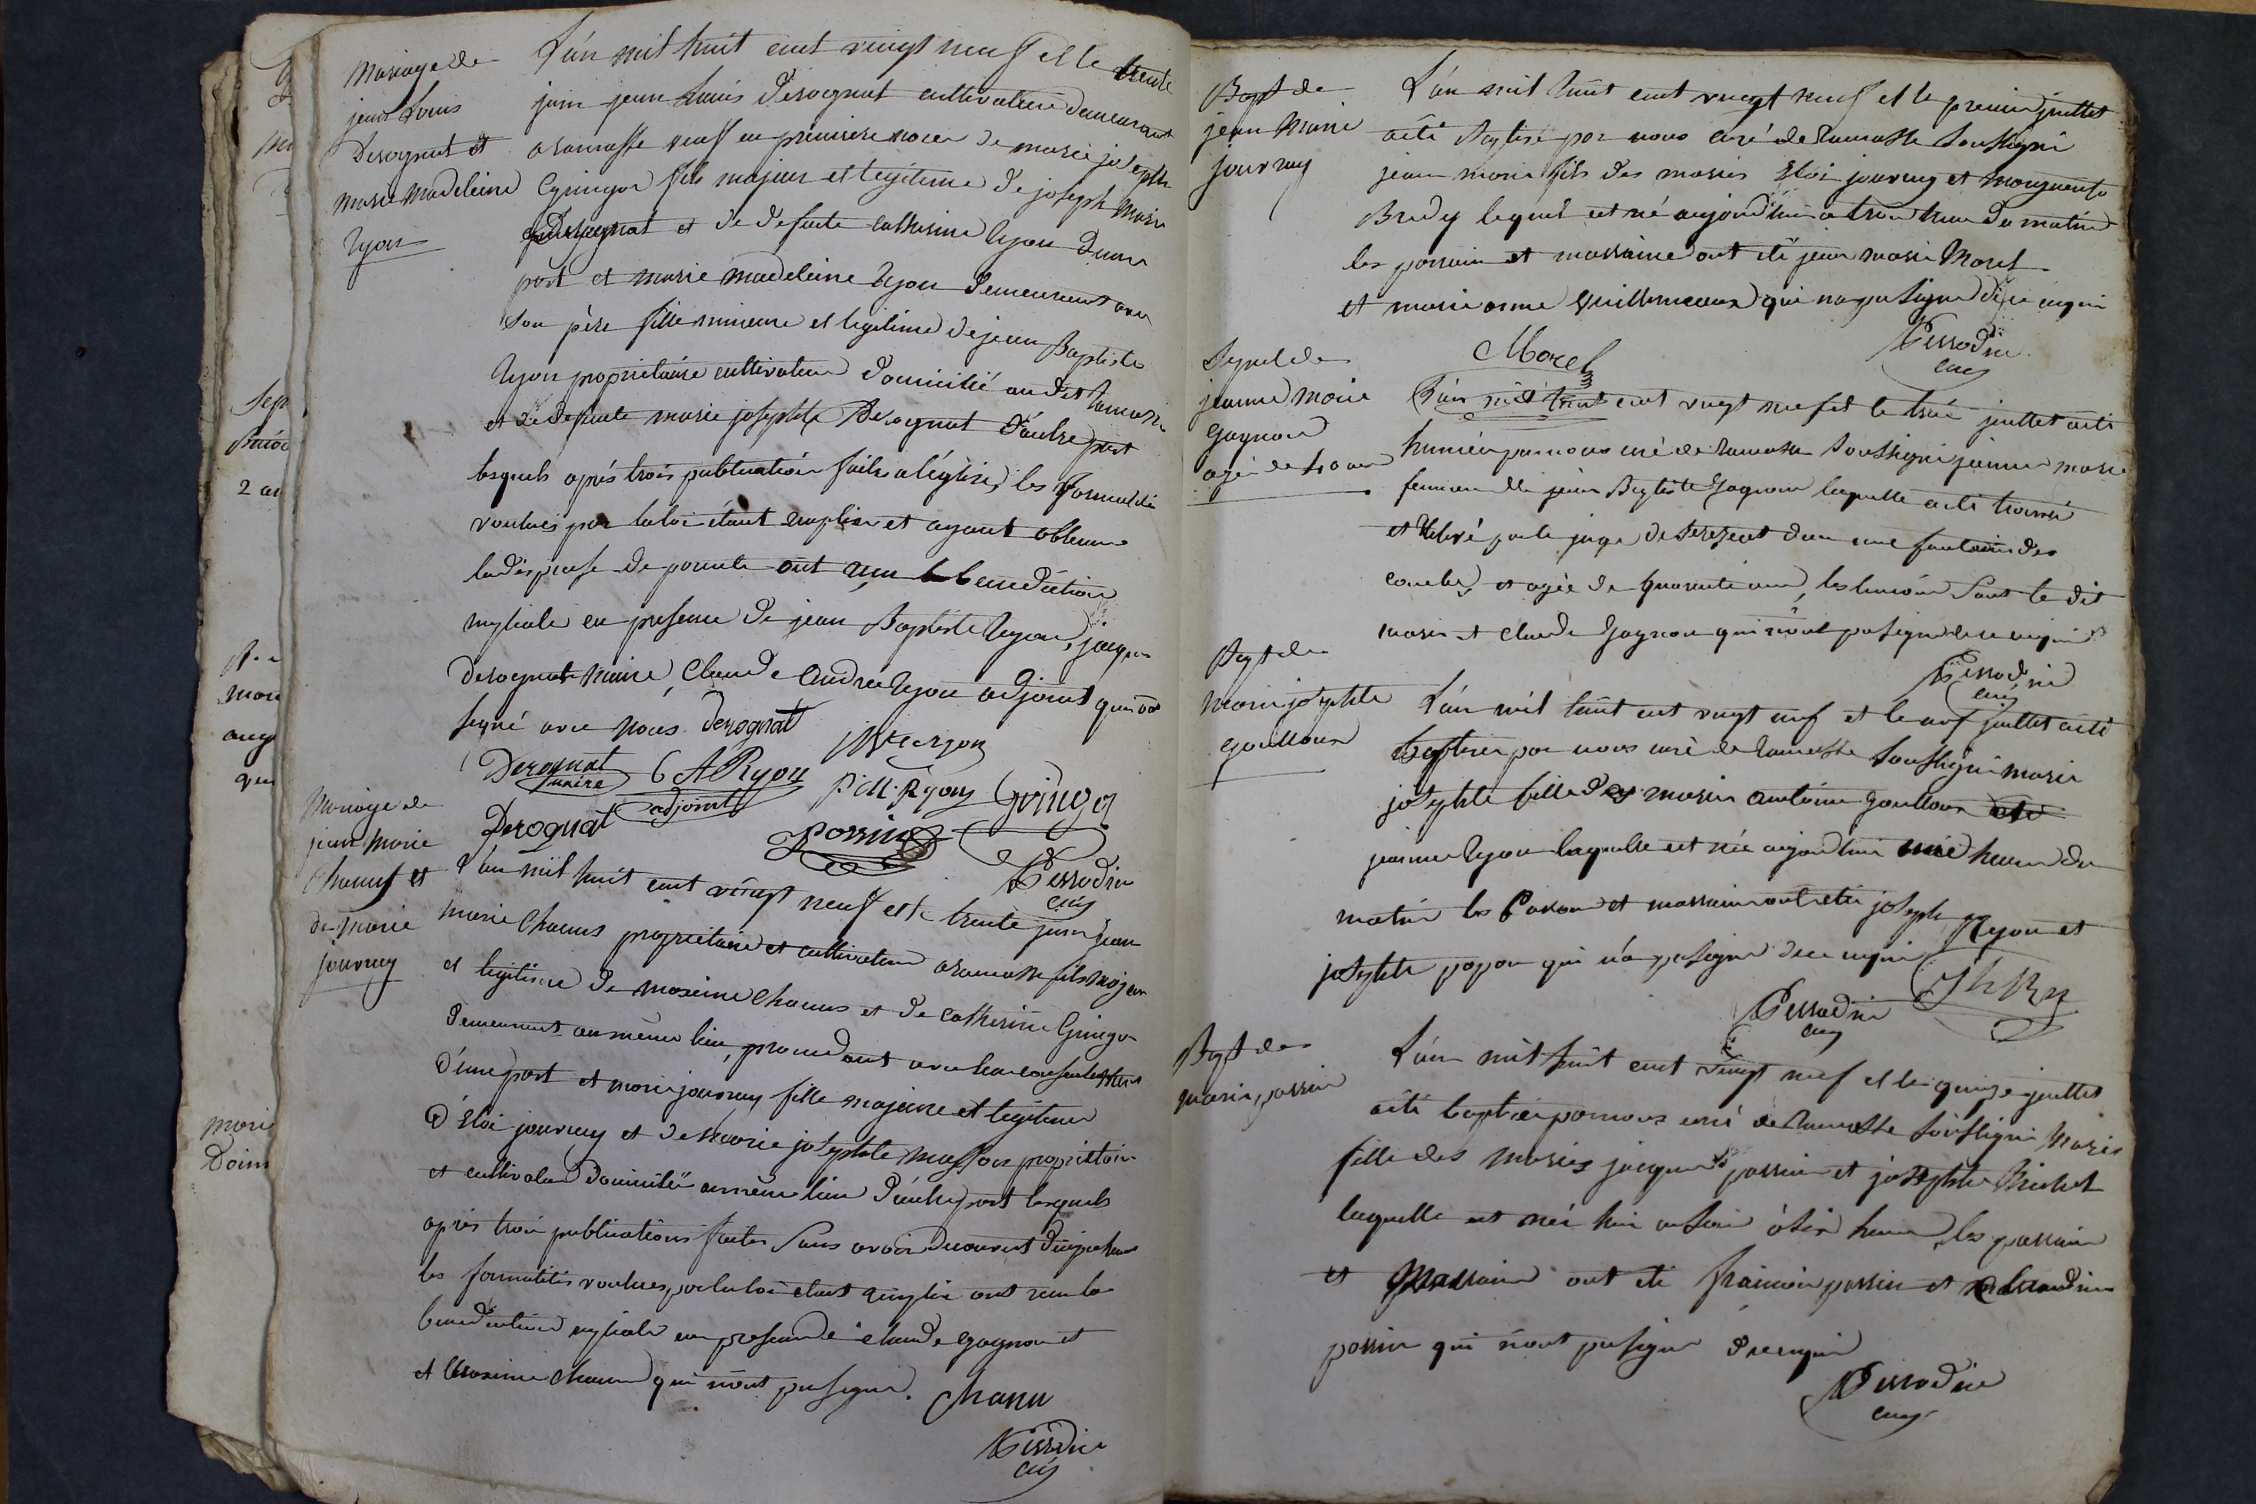 Mariage de
jean Louis
Desognat et
marie madeleine
Ryon
L'an mil huit cent vingt neuf et le trente
juin jean Louis Desognat cultivateur demeurant
a ramasse veuf en premiere noces de marie joseph
Gringoz fils majeur et legitime de joseph Marie
Desognat et de defunte catherine Ryon d'une
part et marie madeleine Ryon demeurant avec
son père fille mineure et legitime de jean Baptiste
Ryon propriétaire cultivateur domicilié au dit ramasse
et de defunte marie josephte Desognat d'autre part
lesquels après trois publication faite a l'église, les formalités
voulues par la loi étant remplies et ayant obtenu
la dispense de parenté ont reçu la benediction
nuptiale en presence de jean Baptiste Ryon, jacques
Desognat maire, Claude André Ryon adjoint qui ont
signé avec nous. Derognat
JBte ryon
Derognat
maire
C A Ryon
adjoint
P M. Ryon
Gringoz
Derognat
Possin
Perrodin
curé
Mariage de
jean Marie
Chanus et
de Marie
Jouvray
L'an mil huit cent vingt neuf et le trente juin jean
marie Chanus propriétaire et cultivateur a ramasse fils majeur
et legitime de maxime Chanus et de catherine Gringoz
demeurant au même lieu, procedant avec leur consentement
d'une part et marie jouvray fille majeure et legitime
d'Eloi jouvray et de Marie josephte propriétaire
et cultivateur domicilié au même lieu d'autre part lesquels
après trois publications faites sans avoir decouvert d'
les formalités voulues par la loi étant remplies ont reçu la
benediction nuptiale en presence de claude Gagnon et
et Maxime Chanus qui n'ont pu signer. Chanu
Perrodin
curé
Bapt de
jean Marie
jouvray
L'an mil huit cent vingt neuf et le premier juillet
a été baptisé par nous curé de Ramasse Soussigné
jean marie fils des mariés Eloi jouvray et marguerite
Brudy lequel est né aujourd'hui a trois heure du matin
les parrain et marraine ont été jean marie Morel
et marie anne Guillermeaux qui n'a pu signer de ce enquis
Morel
Perrodin
curé
Sepul de
jeanne Marie
Gagnon
agée de 40 ans
L'an mil huit cent vingt neuf et le trois juillet a été
humée par nous curé de ramasse Soussigné jeanne marie
femme de jean Baptiste Gagnon laquelle a été trouvée
et relevé par le juge de dans une fontaine des
et agée de quarante ans, les temoin sont le dit
maris et claude Gagnon qui n'ont pu signer de ce enquis
Perrodin
curé
Bapt de
Marie josephte
goulloux
L'an mil huit cent vingt neuf et le neuf juillet a été
baptisée par nous curé de ramasse Soussigné marie
josephte fille des mariés antoine goulloux et de
jeanne Ryon laquelle est née aujourd'hui une heure du
matin les Parrain et marraine ont été joseph Ryon et
josephte popon qui n'a pu signer de ce enquis
Jh Ry
Perrodin
curé
Bapt de
Marie possin
L'an mil huit cent vingt neuf et le quinze juillet
a été baptisée par nous curé de Ramasse Soussigné Marie
fille des mariés jacques possin et josephte Michet
laquelle est née hier au soir à six heure, les parrain
et Marraine ont été françois possin et
possin qui n'ont pu signer de ce enquis
Perrodin
curé